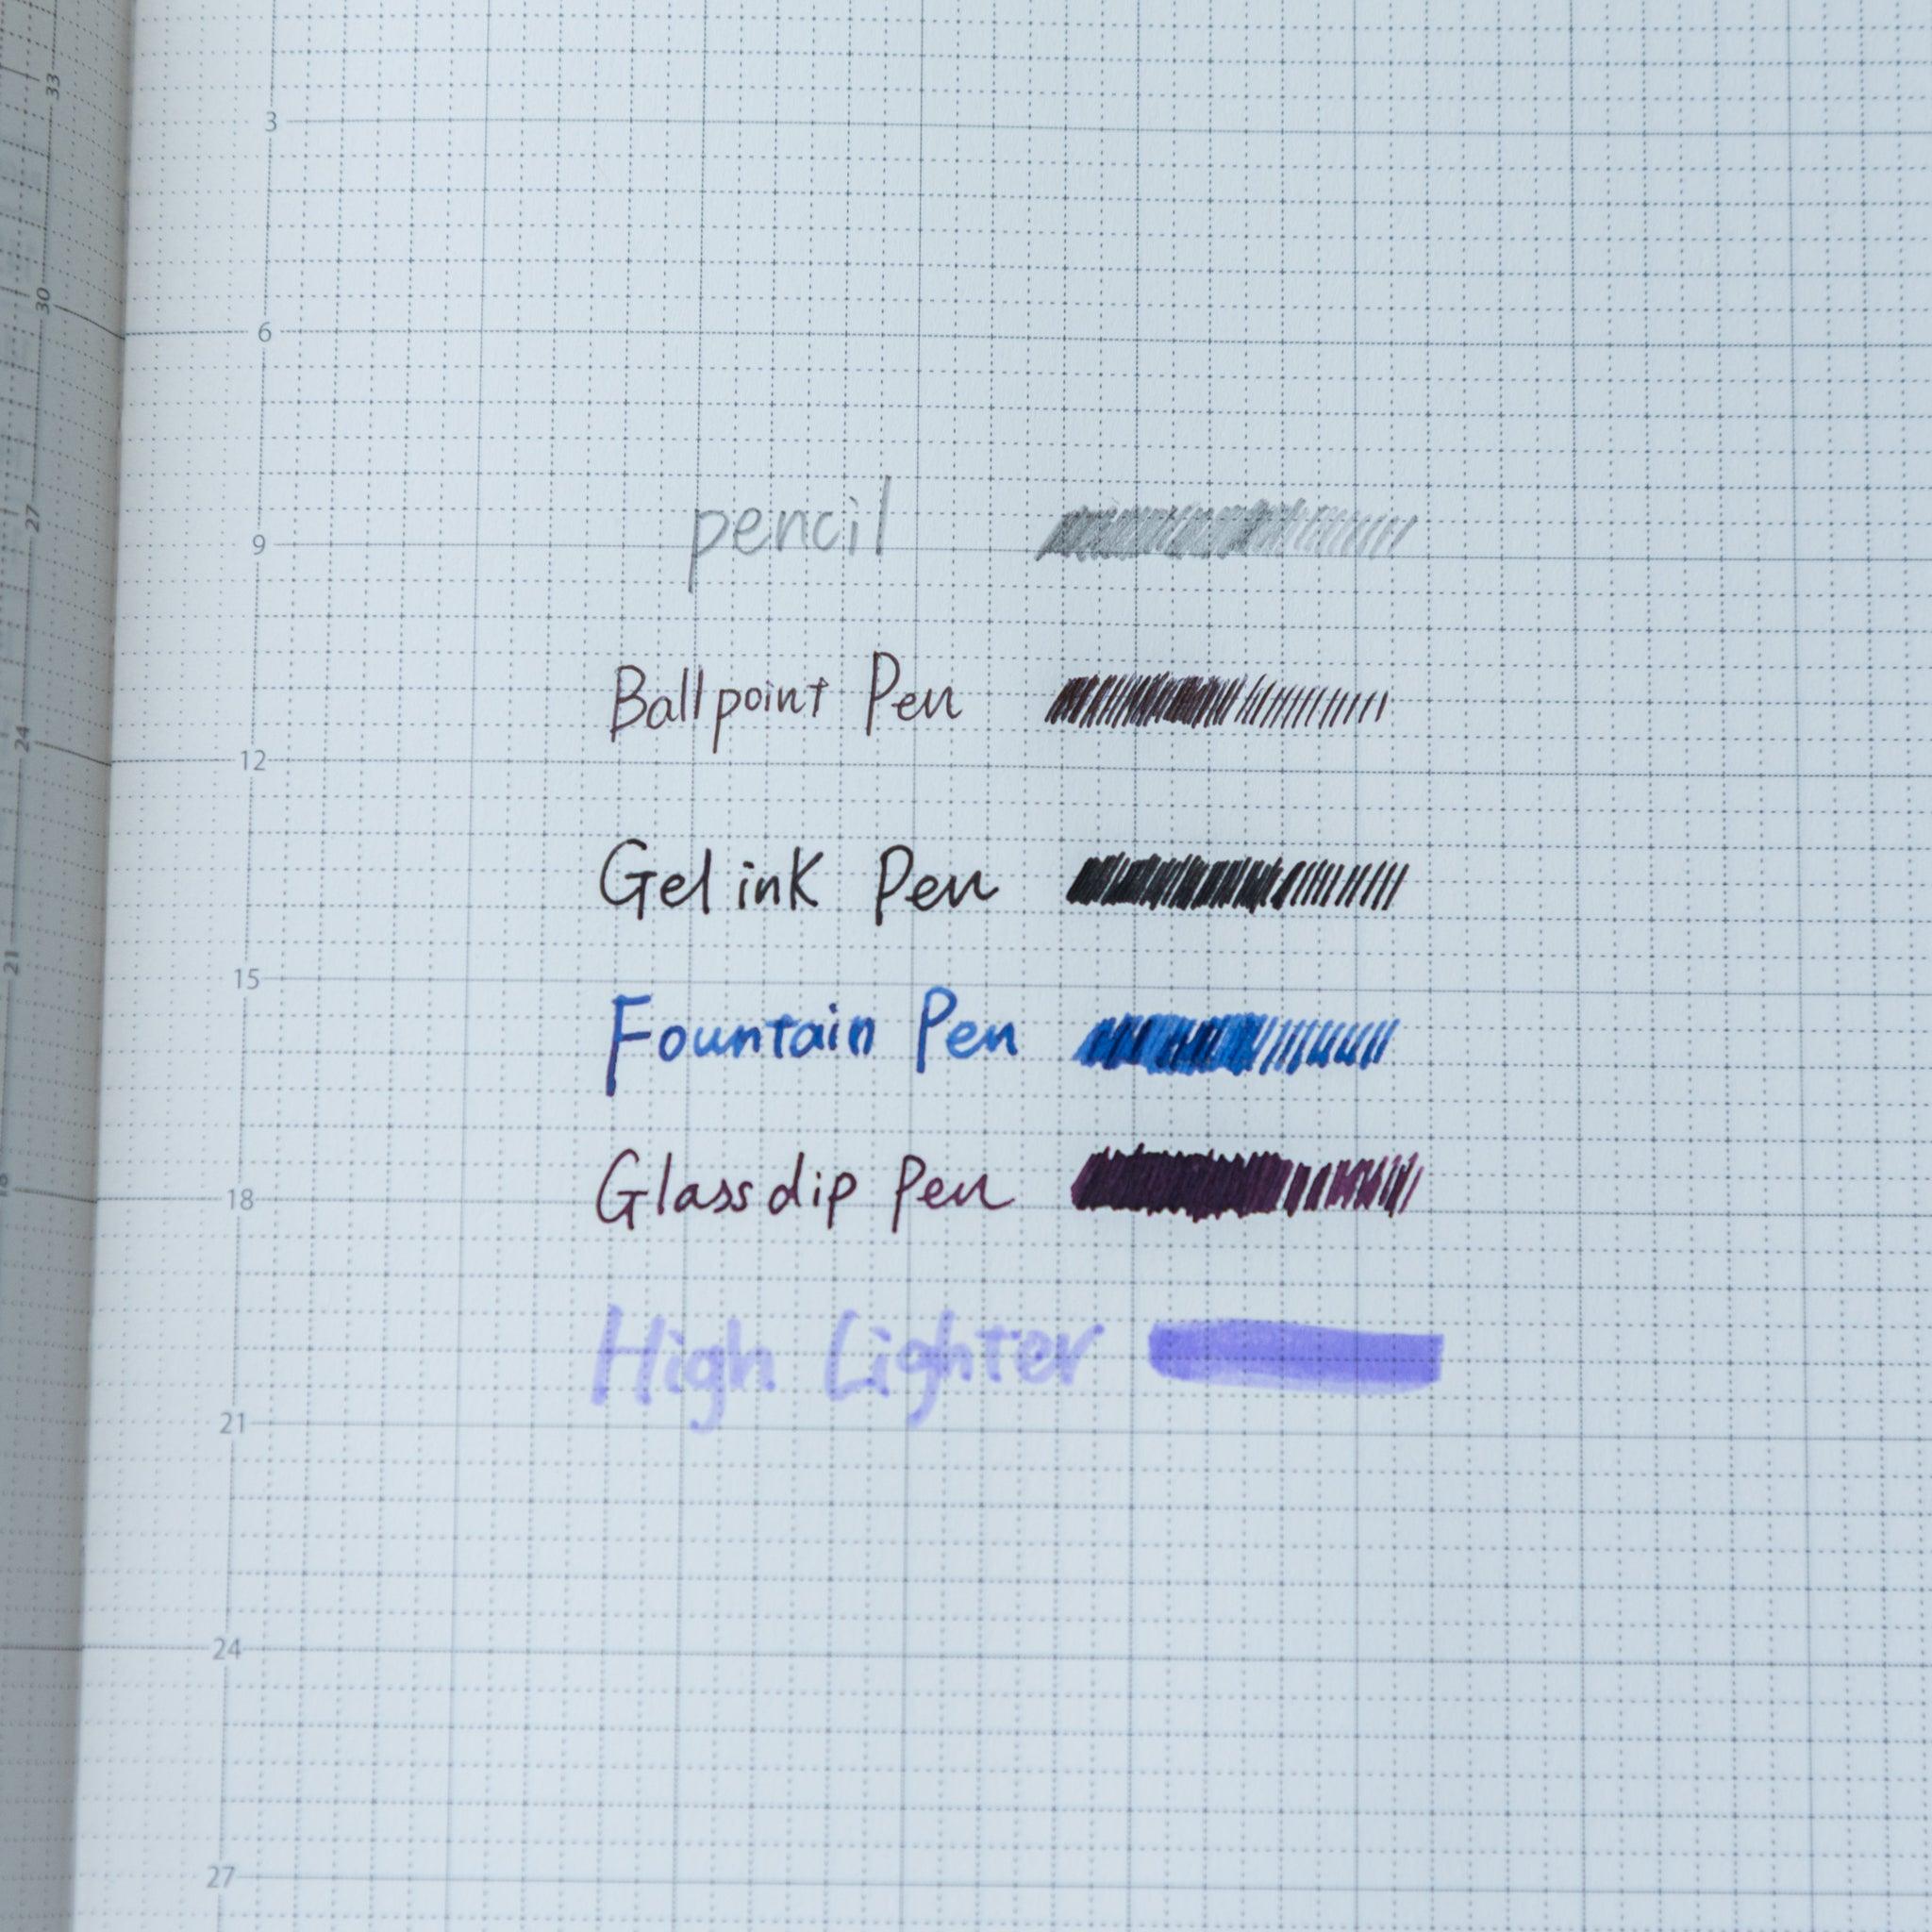 33
3
30
6
pencil
27
9
Ballpoint Pen
24
12
Gel ink Pen
21
15
Fountain Pen
Glass dip Pen
18
18
High Lighter
21
24
27